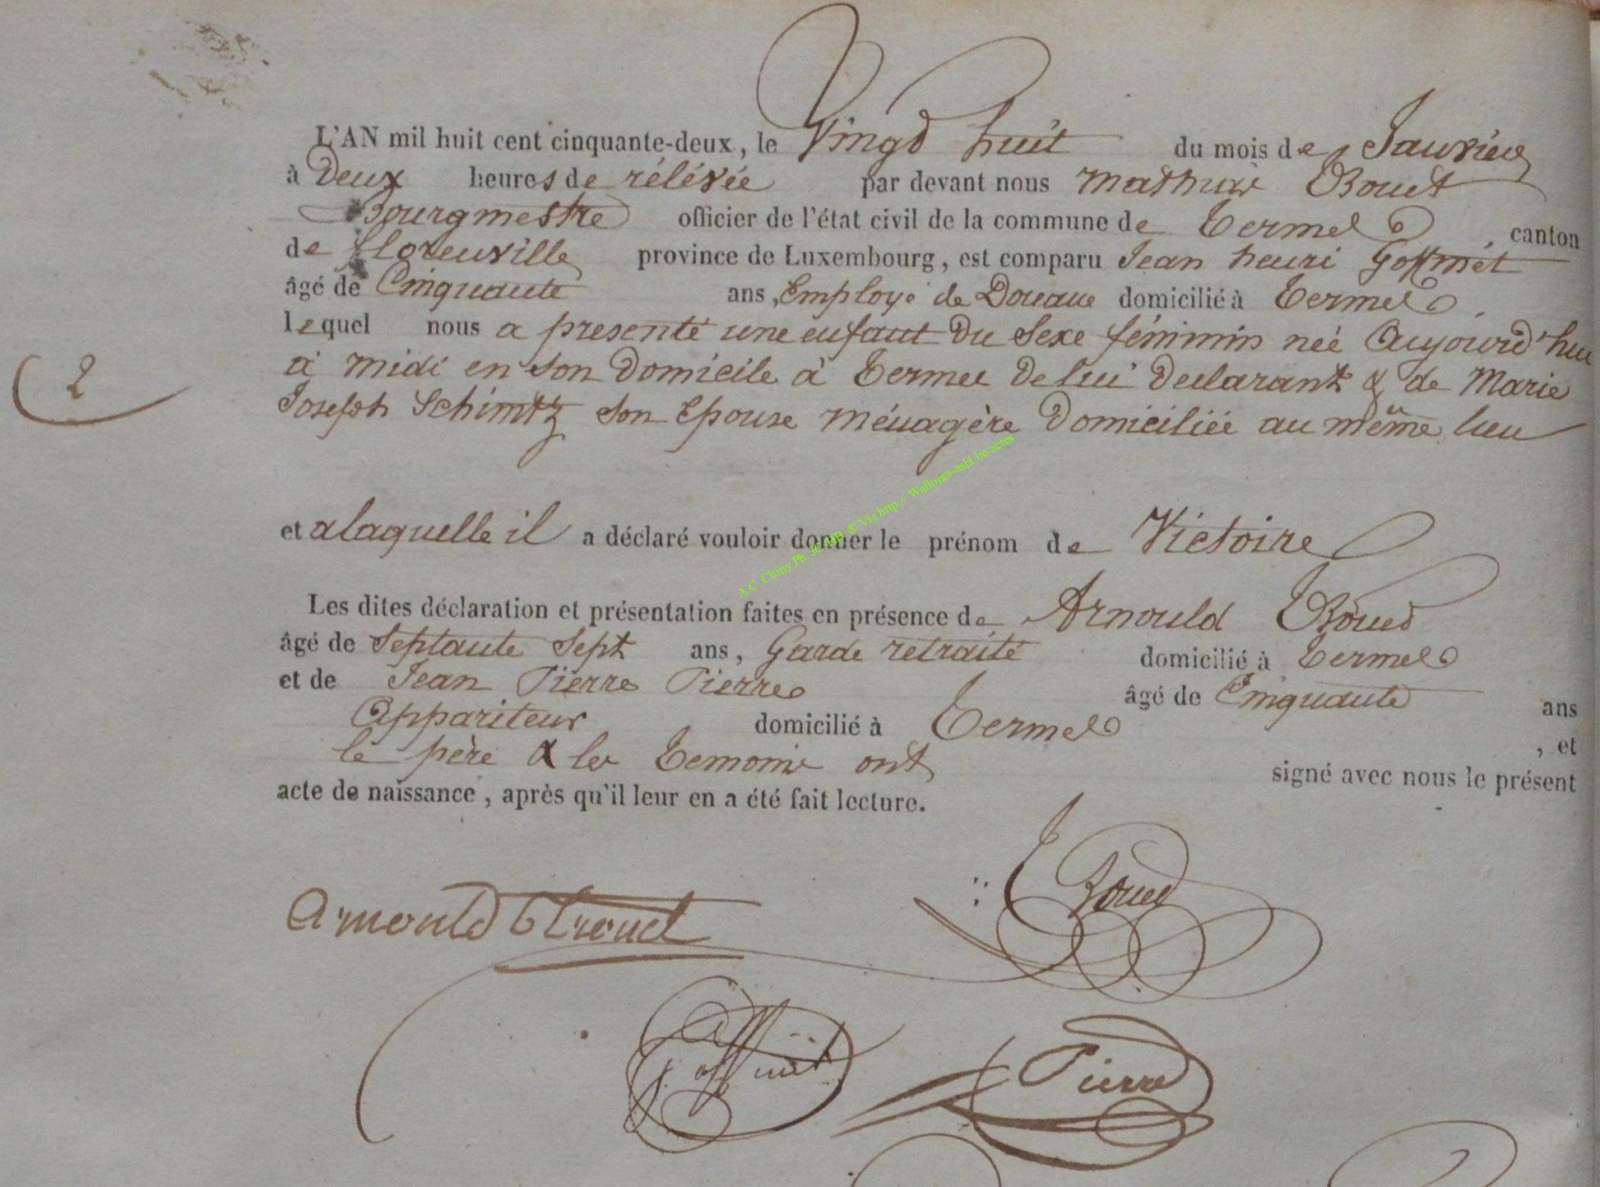 L'AN mil huit cent cinquante-deux, le Vingd huit du mois de Janvier
à Deux heures de rélévée par devant nous Mathieu Bouet
Bourgmestre officier de l'état civil de la commune de Termes canton
de florenville province de Luxembourg, est comparu Jean henri Goffinet
âgé de Cinquante ans, Employé de Douane domicilié à Termes
lequel nous a presenté une enfant Du Sexe féminin neé Aujourd'hui
à midi en son Domicile à Termes De lui Declarant & de Marie
Joseph Schimtz son Epouse Ménagère Domiciliée au même lieu
2
et a laquelle il a déclaré vouloir donner le prénom de Victoire
Les dites déclaration et présentation faites en présence de Arnould Boued
âgé de Septante Sept ans, Garde retraité domicilié à Termes
et de Jean Pierre Pierre âgé de Cinquante ans
Appariteur domicilié à Termes , et
le père & les Temoins ont signé avec nous le présent
acte de naissance, après qu'il leur en a été fait lecture.
Boued
Arnould
Goffinet
Pierre